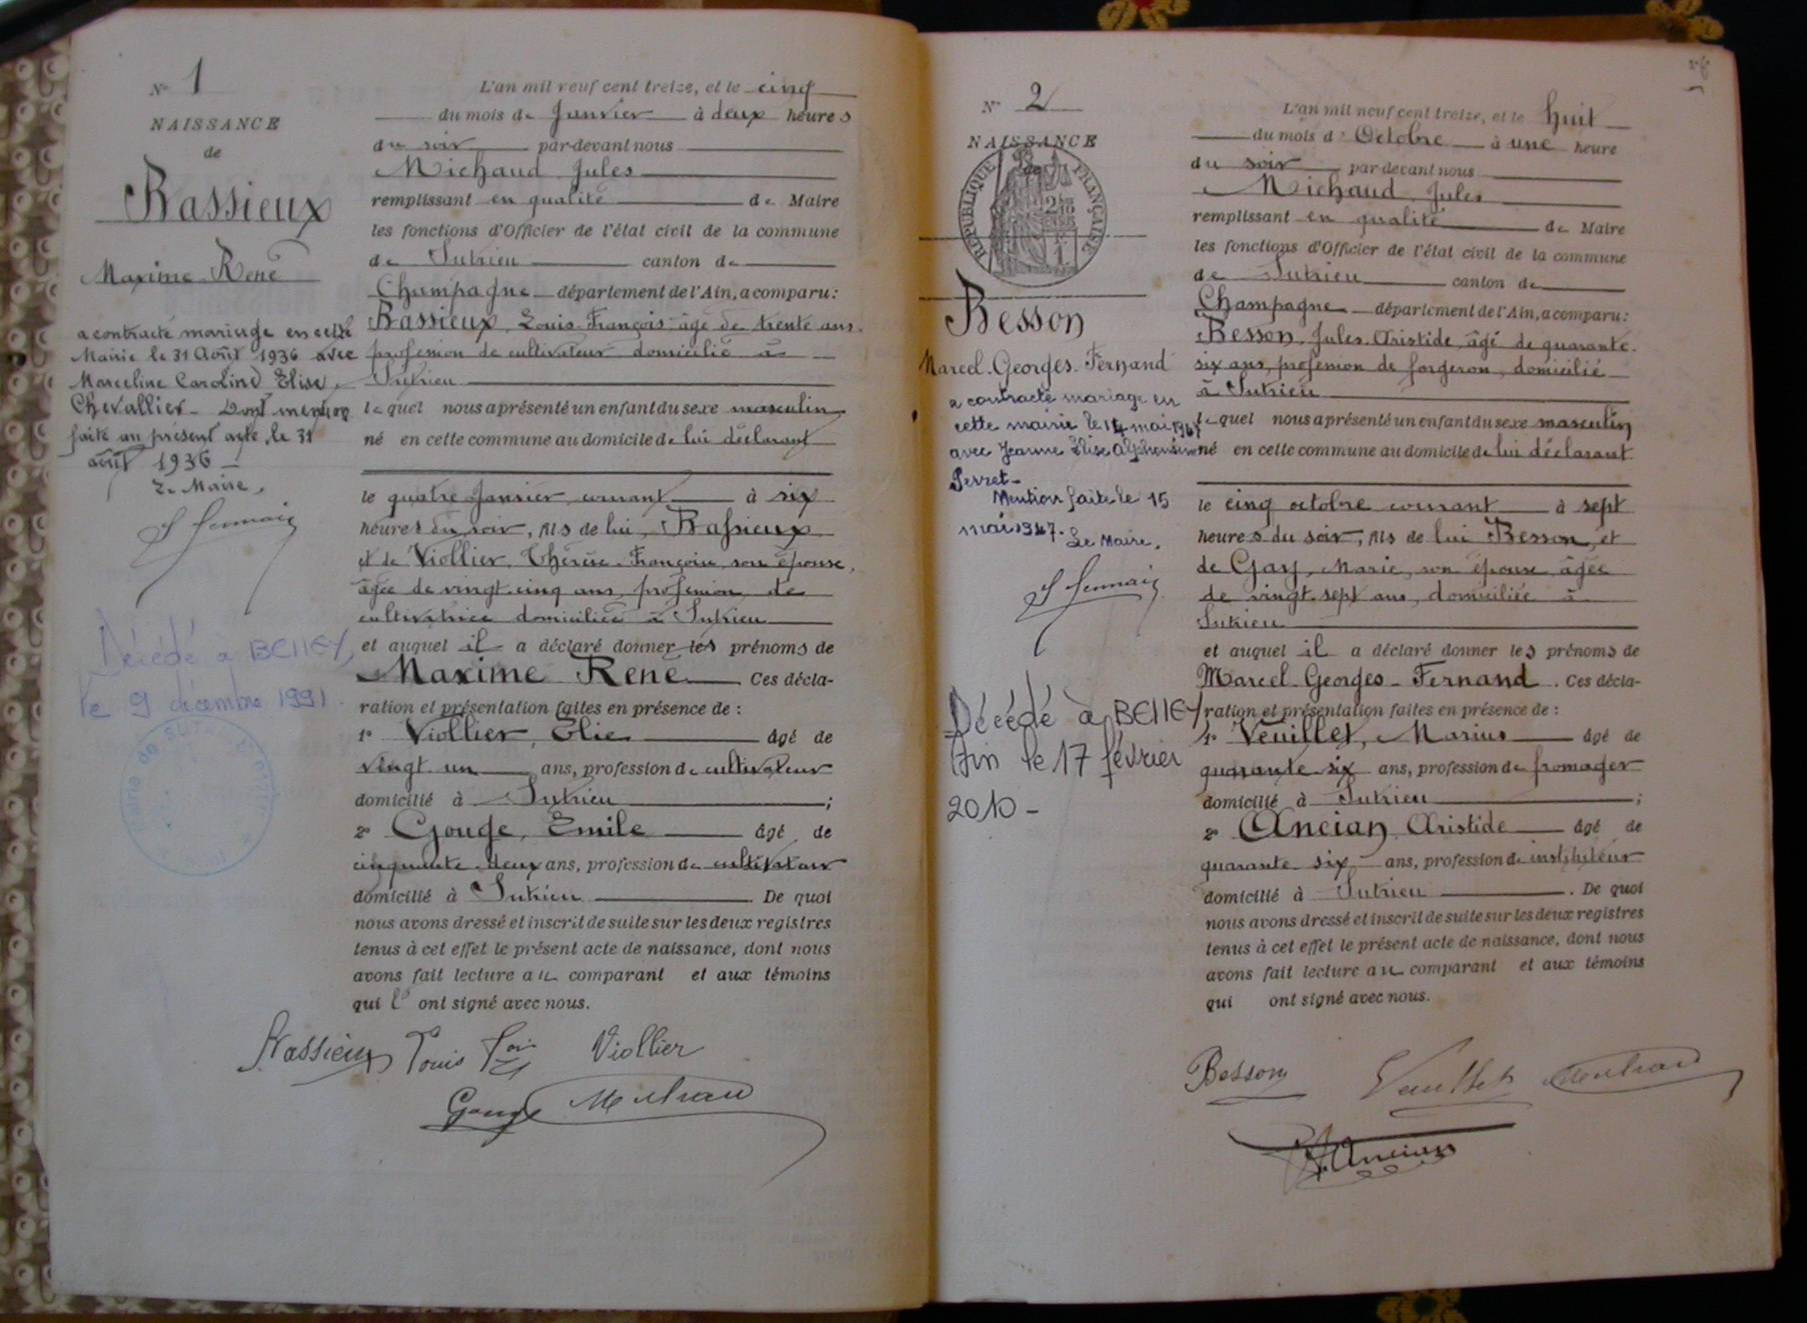 N° 1
NAISSANCE
de
Rassieux
Maxime René
a contracté mariage en cette
Mairie le 31 Août 1936 avec
Marceline Caroline Elise
Chevallier - Dont mention
faite au présent acte, le 31
août 1936 -
Le Maire,
Décédé à BELLEY,
le 9 décembre 1991.
L'an mil neuf cent treize, et le cinq
du mois de Janvier à deux heures
du soir par-devant nous
Michaud Jules
remplissant en qualité de Maire
les fonctions d'Officier de l'état civil de la commune
de Sutrieu canton de
Champagne département de l'Ain, a comparu :
Rassieux, Louis François âgé de trente ans,
profession de cultivateur domicilié à
Sutrieu
lequel nous a présenté un enfant du sexe masculin
né en cette commune au domicile de lui déclarant
le quatre Janvier courant à six
heures du soir, fils de lui, Rassieux
et de Viollier, Thérèse Françoise, son épouse,
âgée de vingt cinq ans, profession de
cultivatrice domiciliée à Sutrieu
et auquel il a déclaré donner les prénoms de
Maxime René Ces décla-
ration et présentation faites en présence de :
1° Viollier, Elie âgé de
vingt un ans, profession de cultivateur
domicilié à Sutrieu ;
2° Gouge, Emile âgé de
cinquante deux ans, profession de cultivateur
domicilié à Sutrieu. De quoi
nous avons dressé et inscrit de suite sur les deux registres
tenus à cet effet le présent acte de naissance, dont nous
avons fait lecture au comparant et aux témoins
qui l' ont signé avec nous.
Rassieux Louis Fois Viollier
Gouge
N° 2
NAISSANCE
de
RÉPUBLIQUE FRANÇAISE
Besson
Marcel Georges Fernand
a contracté mariage en
cette mairie le 14 mai 1947
avec Jeanne Elise Alphonsine
Perret -
Mention faite le 15
mai 1947.
Le Maire,
Décédé à BELLEY
Ain le 17 février
2010 -
L'an mil neuf cent treize, et le huit
du mois d'Octobre à une heure
du soir par-devant nous
Michaud Jules
remplissant en qualité de Maire
les fonctions d'Officier de l'état civil de la commune
de Sutrieu canton de
Champagne département de l'Ain, a comparu :
Besson, Jules Aristide, âgé de quarante
six ans, profession de forgeron, domicilié
à Sutrieu
lequel nous a présenté un enfant du sexe masculin
né en cette commune au domicile de lui déclarant
le cinq octobre courant à sept
heures du soir, fils de lui Besson, et
de Gay, Marie, son épouse âgée
de vingt sept ans, domiciliée à
Sutrieu
et auquel il a déclaré donner les prénoms de
Marcel Georges Fernand. Ces décla-
ration et présentation faites en présence de :
1° Veuillet, Marius âgé de
quarante six ans, profession de fromager
domicilié à Sutrieu ;
2° Ancian Aristide âgé de
quarante six ans, profession de instituteur
domicilié à Sutrieu. De quoi
nous avons dressé et inscrit de suite sur les deux registres
tenus à cet effet le présent acte de naissance, dont nous
avons fait lecture au comparant et aux témoins
qui ont signé avec nous.
Besson Veuillet
Ancian